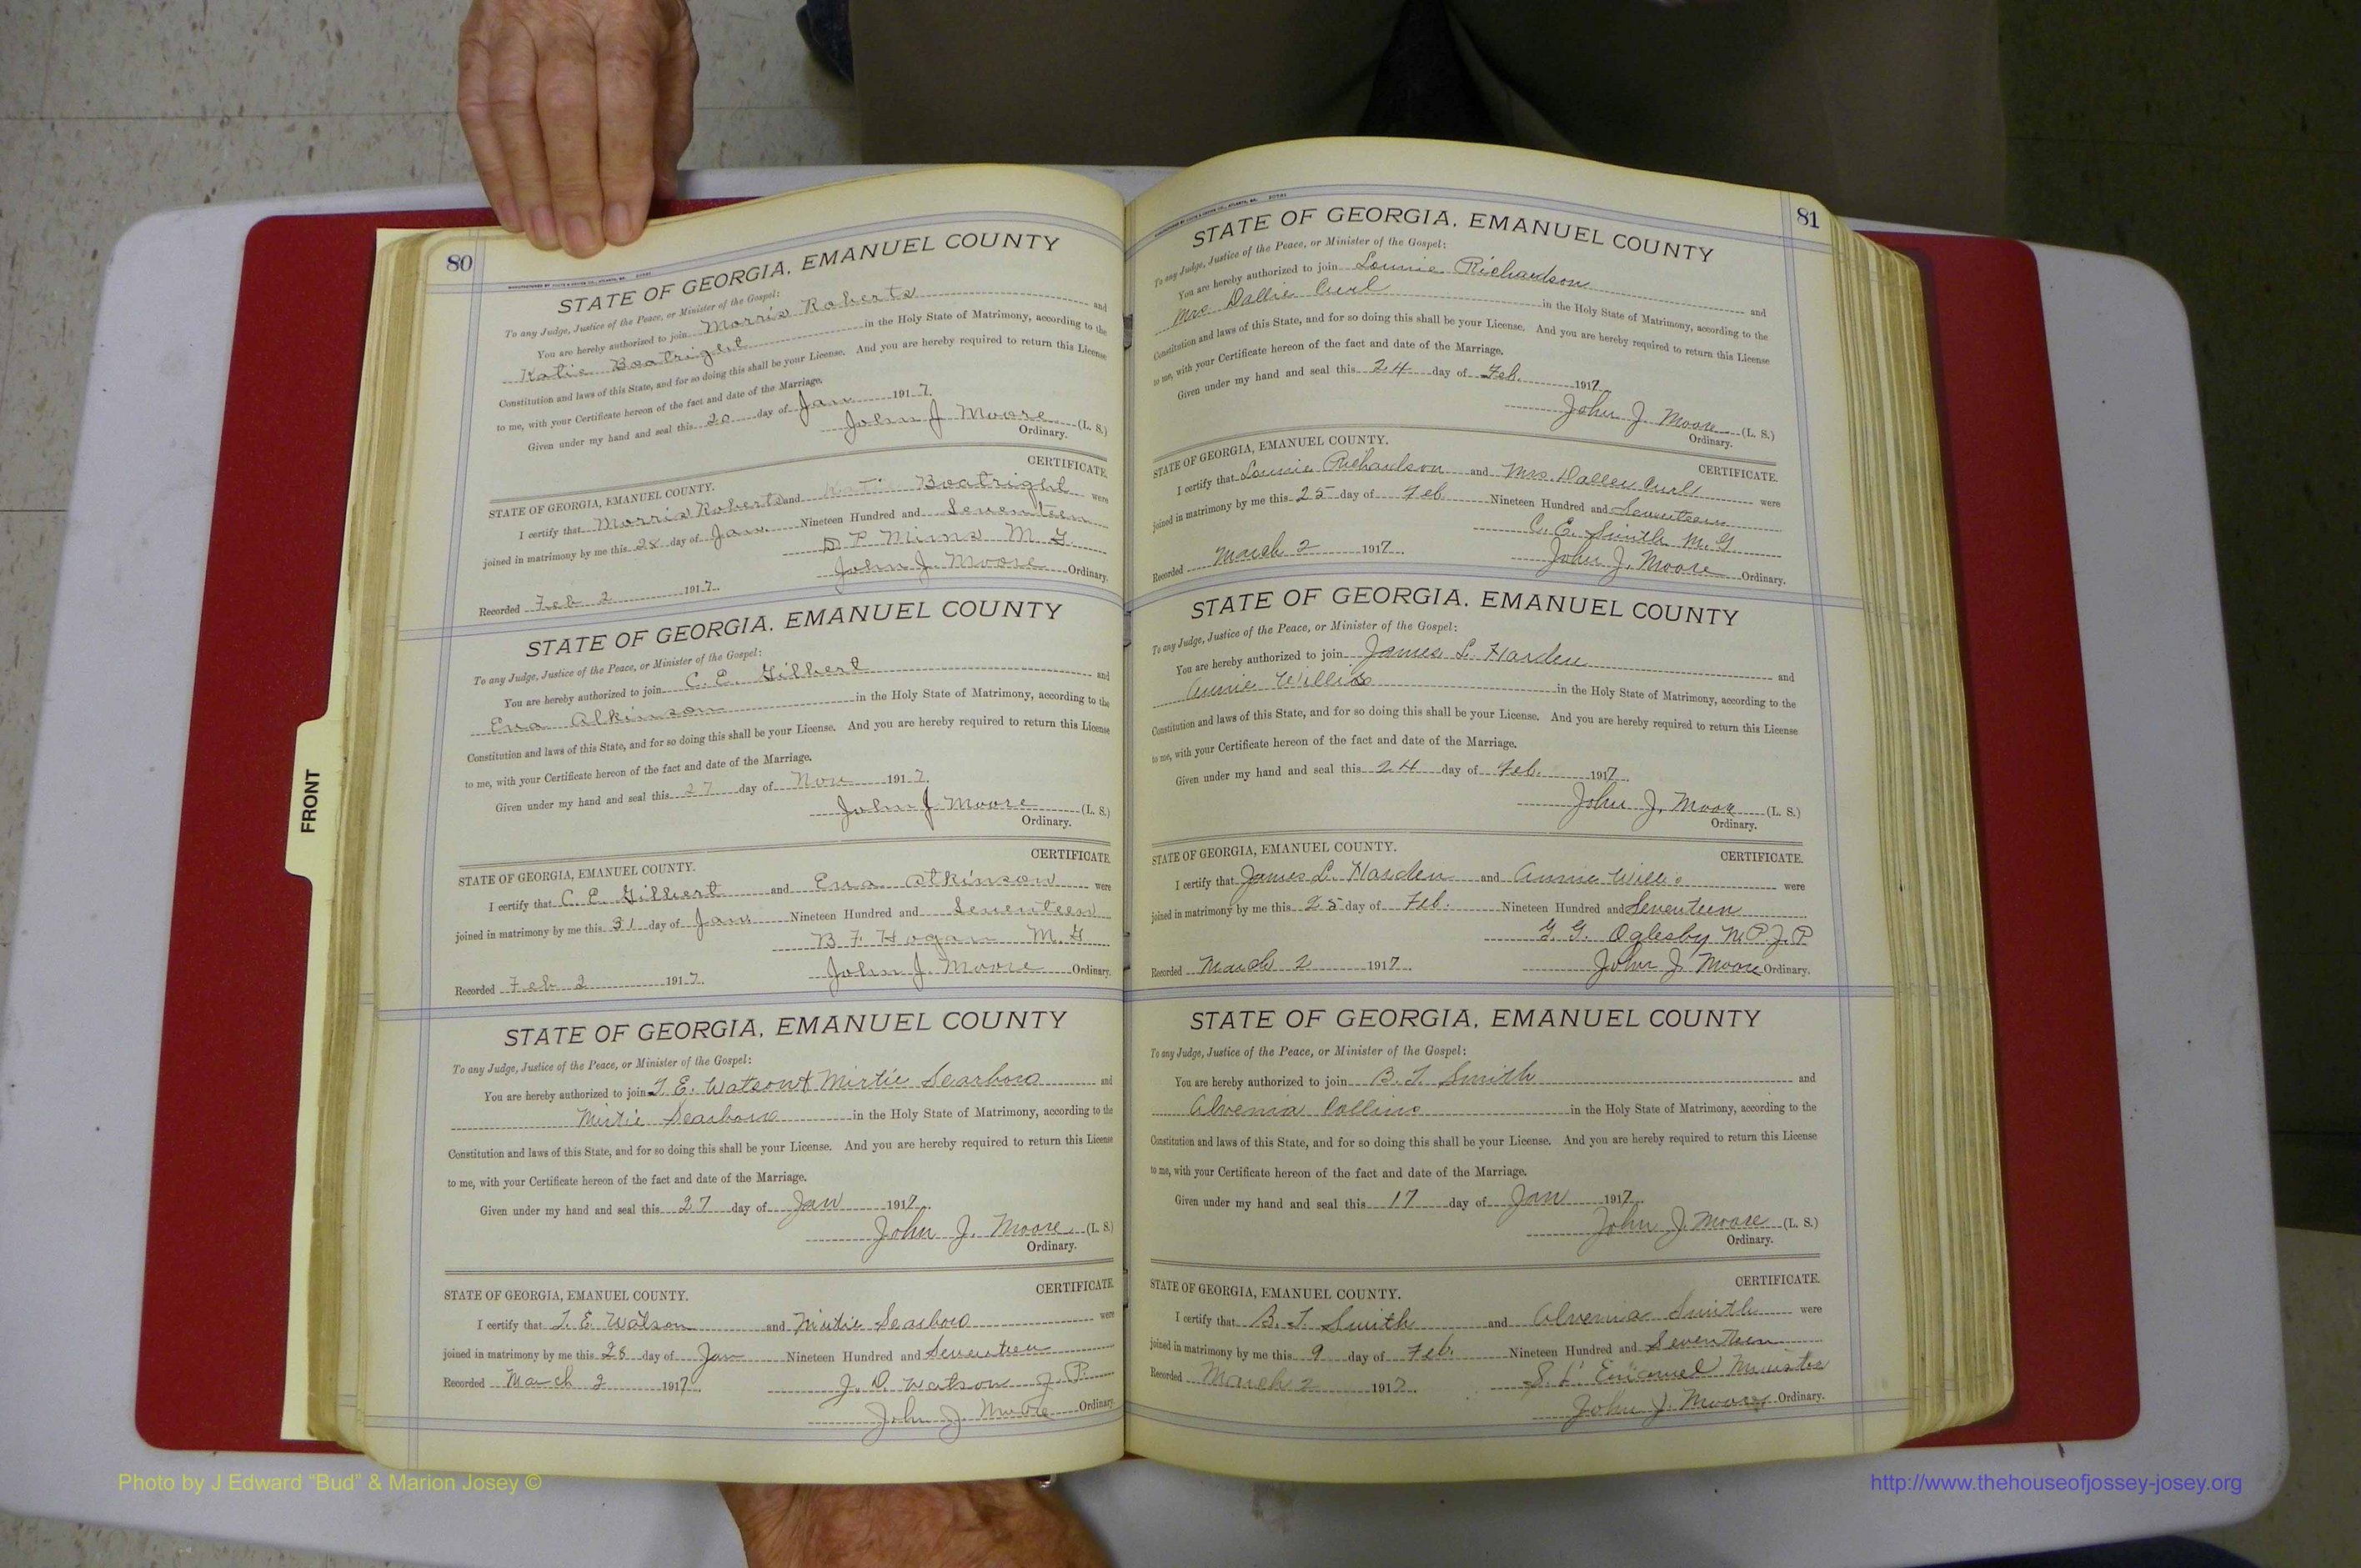 80
STATE OF GEORGIA, EMANUEL COUNTY
To any Judge, Justice of the Peace, or Minister of the Gospel:
You are hereby authorized to join Morris Roberts and
Katie Boatright in the Holy State of Matrimony, according to the
Constitution and laws of this State, and for so doing this shall be your License. And you are hereby required to return this License
to me, with your Certificate hereon of the fact and date of the Marriage.
Given under my hand and seal this 20 day of Jan 1917.
John J Moore (L. S.)
Ordinary.
CERTIFICATE
STATE OF GEORGIA, EMANUEL COUNTY.
I certify that Morris Roberts and Katie Boatright were
joined in matrimony by me this 28 day of Jan. Nineteen Hundred and Seventeen
D P Mims M. G.
Recorded Feb 2 1917. John J. Moore Ordinary.
STATE OF GEORGIA, EMANUEL COUNTY
To any Judge, Justice of the Peace, or Minister of the Gospel:
You are hereby authorized to join C. E. Gilbert and
Ena Atkinson in the Holy State of Matrimony, according to the
Constitution and laws of this State, and for so doing this shall be your License. And you are hereby required to return this License
to me, with your Certificate hereon of the fact and date of the Marriage.
Given under my hand and seal this 27 day of Nov 1917.
John J Moore (L. S.)
Ordinary.
CERTIFICATE
STATE OF GEORGIA, EMANUEL COUNTY.
I certify that C. E. Gilbert and Ena Atkinson were
joined in matrimony by me this 31 day of Jan. Nineteen Hundred and Seventeen
B F Hogan M. G
Recorded Feb 2 1917. John J. Moore Ordinary.
STATE OF GEORGIA, EMANUEL COUNTY
To any Judge, Justice of the Peace, or Minister of the Gospel:
You are hereby authorized to join T. E. Watson & Mirtie Scarboro and
Mirtie Scarboro in the Holy State of Matrimony, according to the
Constitution and laws of this State, and for so doing this shall be your License. And you are hereby required to return this License
to me, with your Certificate hereon of the fact and date of the Marriage.
Given under my hand and seal this 27 day of Jan 1917.
John J. Moore (L. S.)
Ordinary.
CERTIFICATE
STATE OF GEORGIA, EMANUEL COUNTY.
I certify that T. E. Watson and Mirtie Scarboro were
joined in matrimony by me this 28 day of Jan Nineteen Hundred and Seventeen
Recorded March 2 1917. J. D. Watson J. P.
John J. Moore Ordinary
81
STATE OF GEORGIA, EMANUEL COUNTY
To any Judge, Justice of the Peace, or Minister of the Gospel:
You are hereby authorized to join Lonnie Richardson and
Mrs Dallie Curl in the Holy State of Matrimony, according to the
Constitution and laws of this State, and for so doing this shall be your License. And you are hereby required to return this License
to me, with your Certificate hereon of the fact and date of the Marriage.
Given under my hand and seal this 24 day of Feb. 1917.
John J. Moore (L. S.)
Ordinary.
STATE OF GEORGIA, EMANUEL COUNTY.
CERTIFICATE.
I certify that Lonnie Richardson and Mrs. Curl were
joined in matrimony by me this 25 day of Feb Nineteen Hundred and Seventeen
C. E. Smith M. G
Recorded March 2 1917. John J. Moore Ordinary.
STATE OF GEORGIA, EMANUEL COUNTY
To any Judge, Justice of the Peace, or Minister of the Gospel:
You are hereby authorized to join James L. Harden and
Annie Willis in the Holy State of Matrimony, according to the
Constitution and laws of this State, and for so doing this shall be your License. And you are hereby required to return this License
to me, with your Certificate hereon of the fact and date of the Marriage.
Given under my hand and seal this 24 day of Feb. 1917.
John J. Moore (L. S.)
Ordinary.
STATE OF GEORGIA, EMANUEL COUNTY.
CERTIFICATE.
I certify that James L. Harden and Annie Willis were
joined in matrimony by me this 25 day of Feb. Nineteen Hundred and Seventeen
G. G. Oglesby N. P. J. P
Recorded March 2 1917. John J. Moore Ordinary.
STATE OF GEORGIA, EMANUEL COUNTY
To any Judge, Justice of the Peace, or Minister of the Gospel:
You are hereby authorized to join B. T. Smith and
Alvenia Collins in the Holy State of Matrimony, according to the
Constitution and laws of this State, and for so doing this shall be your License. And you are hereby required to return this License
to me, with your Certificate hereon of the fact and date of the Marriage.
Given under my hand and seal this 17 day of Jan 1917.
John J. Moore (L. S.)
Ordinary.
CERTIFICATE.
STATE OF GEORGIA, EMANUEL COUNTY.
I certify that B. T. Smith and Alvenia Smith were
joined in matrimony by me this 9 day of Feb. Nineteen Hundred and Seventeen
Recorded March 2 1917. S. L. Emanuel Minister
John J. Moore Ordinary.
FRONT
Photo by J Edward “Bud” & Marion Josey ©
http://www.thehouseofjossey-josey.org